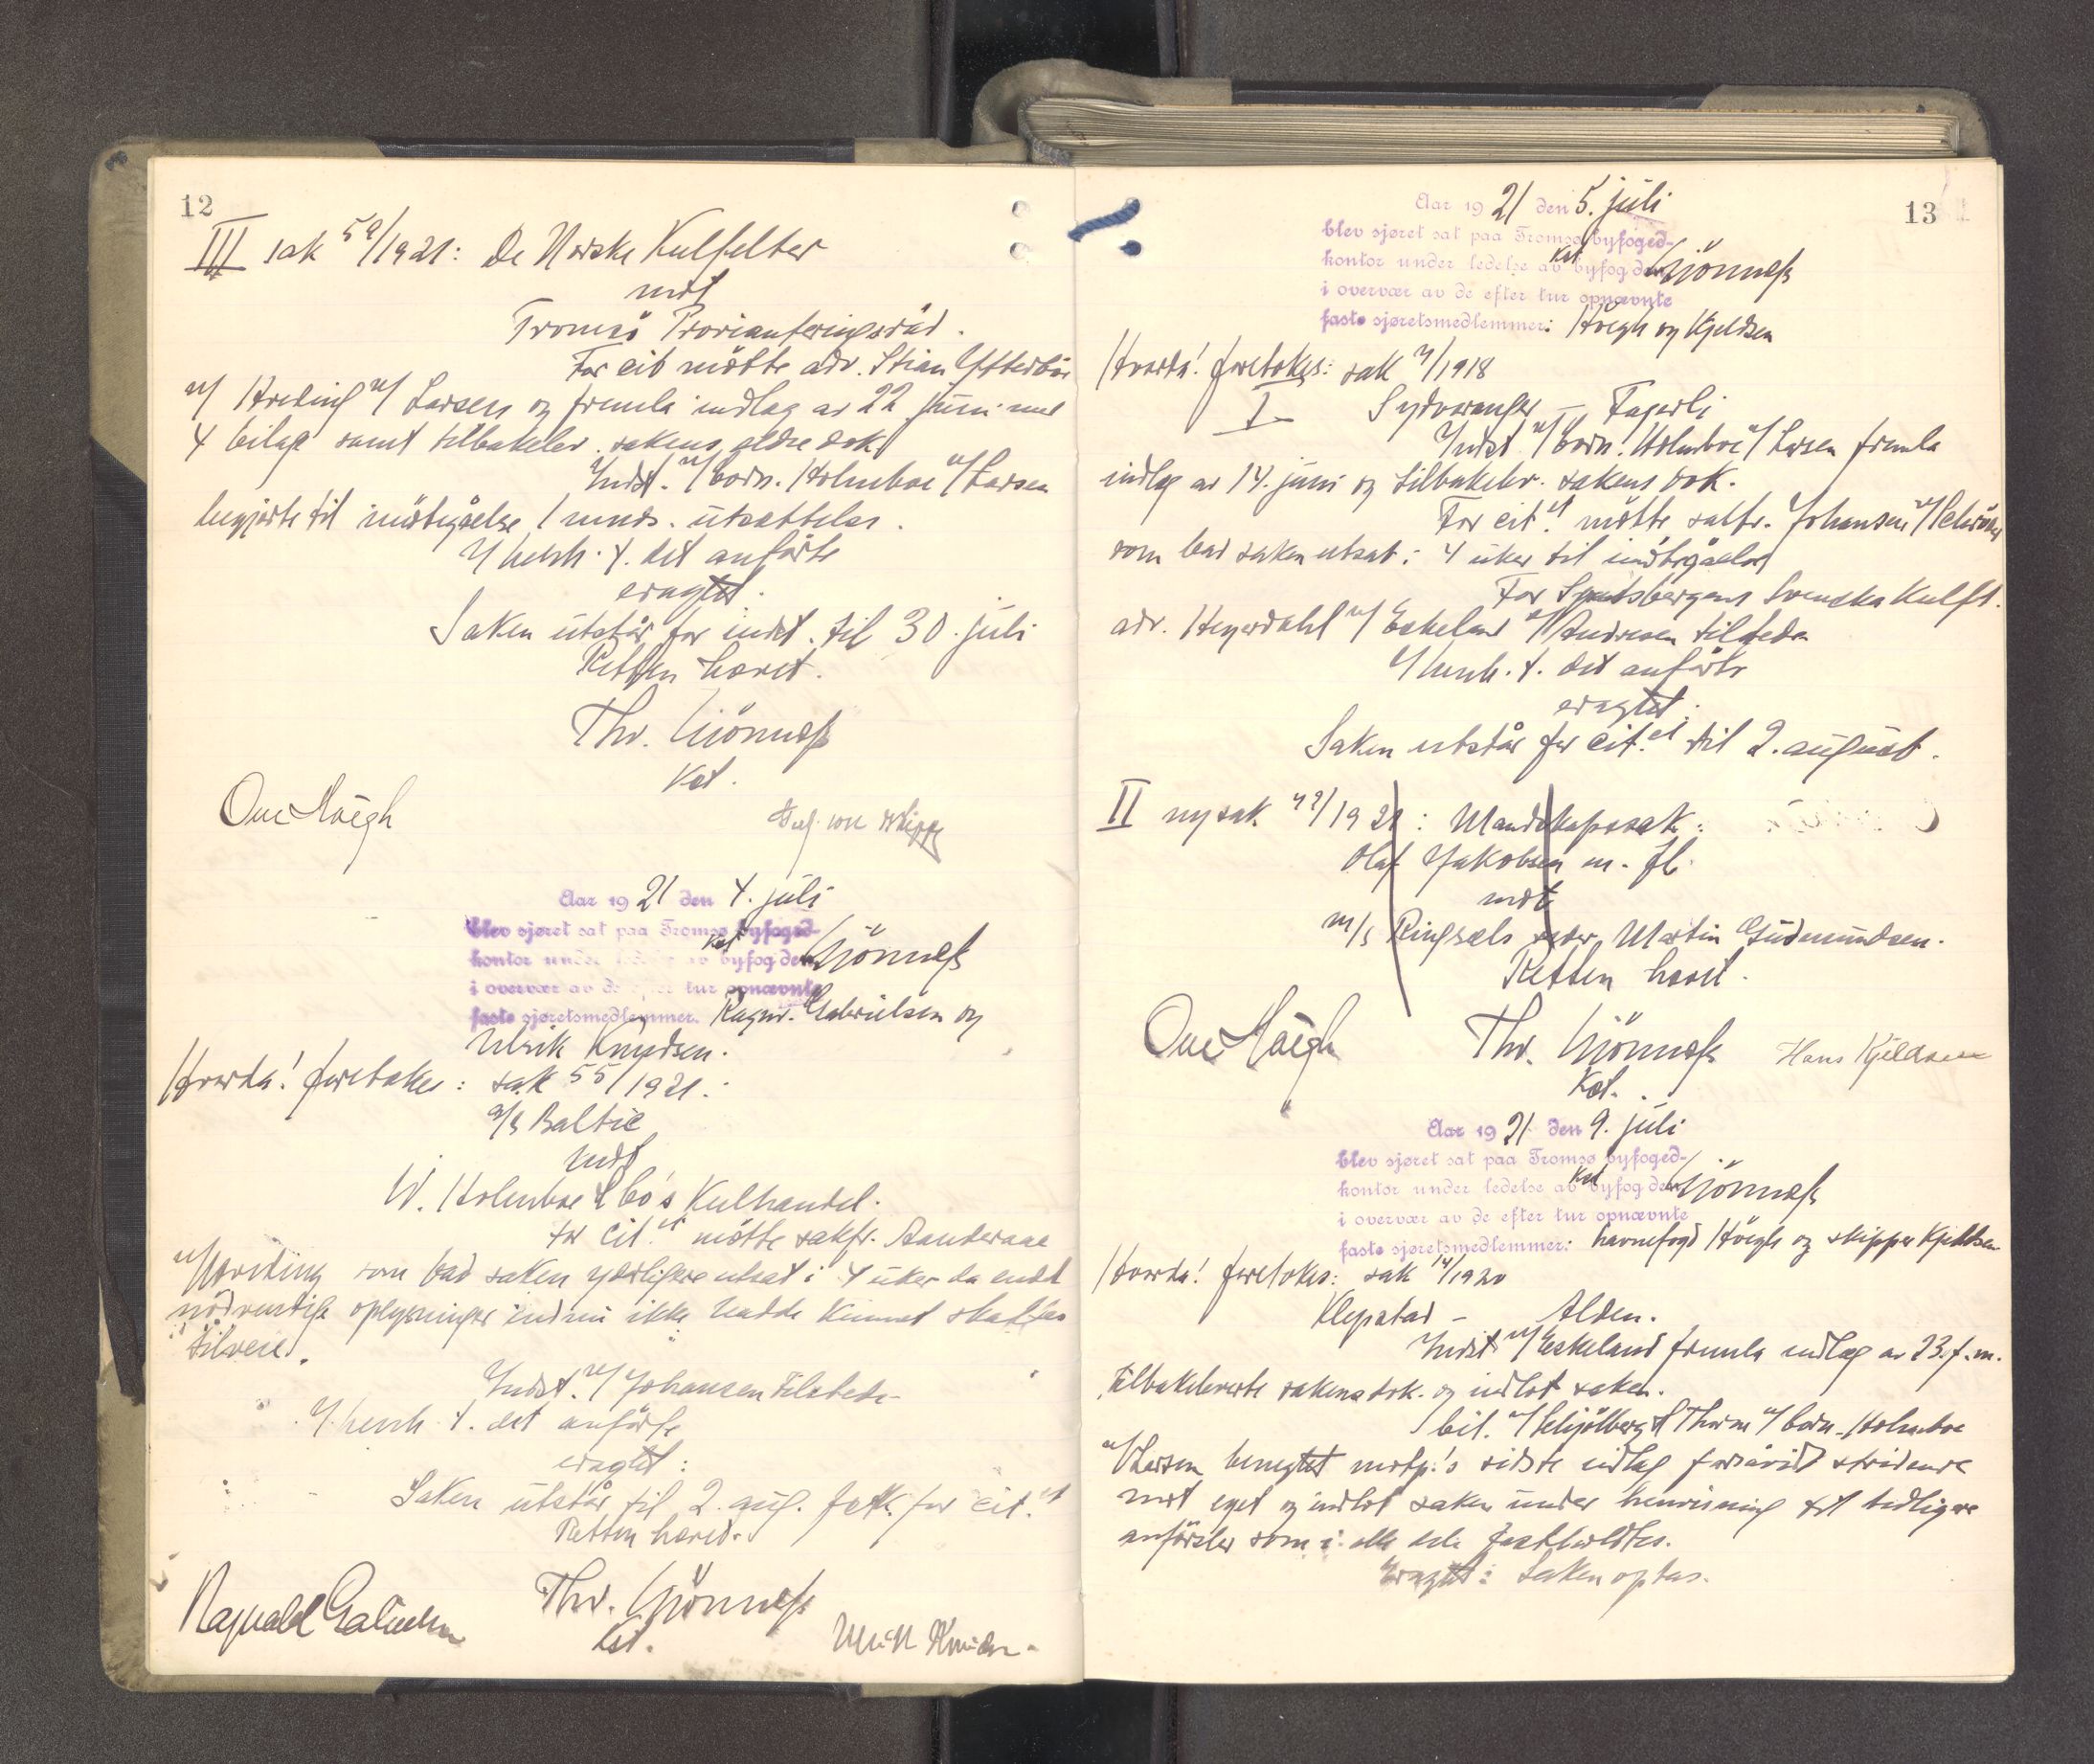 12
III sak 59/1921: De Norske Kulfelter
mot
Tromsö Provianteringsråd.
For cit mötte adv. Stian
v/ Hveding v/ Larsen og fremla indlæg av 22 juni med
4 bilag samt tilbakelev. sakens ældre dok.
Indst. v/ Corn. Holmboe v/ Larsen
begjærte til imötegåelse 1 mnds. utsættelse.
I henh. t. det anförte
eragtet.
Saken utstår for indst. til 30. juli
Retten hævet.
Thv.
Kst.
Ove Höegh
Aar 1921 den 4. juli
blev sjøret sat paa Tromsø byfoged-
kontor under ledelse av kst byfogden
i overvær av de efter tur opnævnte
faste sjøretsmedlemmer. Ragnv. Gabrielsen og
Ulrik Knudsen.
Hvorda! foretokes: sak 55/1921:
a/s Baltic
mot
W. Holmboe & Co's Kulhandel.
For cit. mötte sakfr. Aanderaae
v/ Hveding som bad saken yderligere utsat i 4 uker da endel
nödvendige oplysninger endnu ikke hadde kunnet skaffes
tilveie.
Indst. v/ Johansen tilstede
I henh. t. det anförte
eragtet:
Saken utstår til 2. aug. for cit.
Retten hævet.
Ragnvald Gabrielsen
Thv.
Kst.
Ulrik Knudsen
13
Aar 1921 den 5. juli
blev sjøret sat paa Tromsø byfoged-
kontor under ledelse av kst byfogden
i overvær av de efter tur opnævnte
faste sjøretsmedlemmer: Höegh og Kjeldsen
Hvorda! foretokes: sak 7/1918
I Sydvaranger – Fagerli
Indst v/ Corn. Holmboe v/ Larsen fremla
indlæg av 14. juni og tilbakelev. sakens dok.
For cit. mötte sakfr. Johansen v/ Schröder
som bad saken utsat: 4 uker til imötegåelse
For Spitsbergens Svenska Kulf.
adv. Heyerdahl v/ Eskeland v/ Andresen tilstede
I henh. t. det anförte
eragtet.
Saken utstår for cit. til 2. august.
II ny sak 49/1921: Mandskapssak:
Olaf Jakobsen m. fl.
mot
m/s Ringsæls reder Martin Gudmundsen.
Retten hævet.
Ove Höegh
Thv.
Kst.
Hans Kjeldsen
Aar 1921 den 9. juli
blev sjøret sat paa Tromsø byfoged-
kontor under ledelse av kst byfogden
i overvær av de efter tur opnævnte
faste sjøretsmedlemmer: havnefogd Höegh og skipper Kjeldsen
Hvorda! foretokes: sak 14/1920
Klepstad – Alden.
Indst v/ Eskeland fremla indlæg av 23. f. m.
tilbakeleverte sakens dok. og indlot saken.
Cit. v/ Schjölberg & v/ Corn. Holmboe
v/ Larsen benegtet motp.'s sidste indlæg forsåvidt stridende
mot eget og indlot saken under henvisning til tidligere
anförsler som i alle dele fastholdtes.
Eragtet: Saken optas.